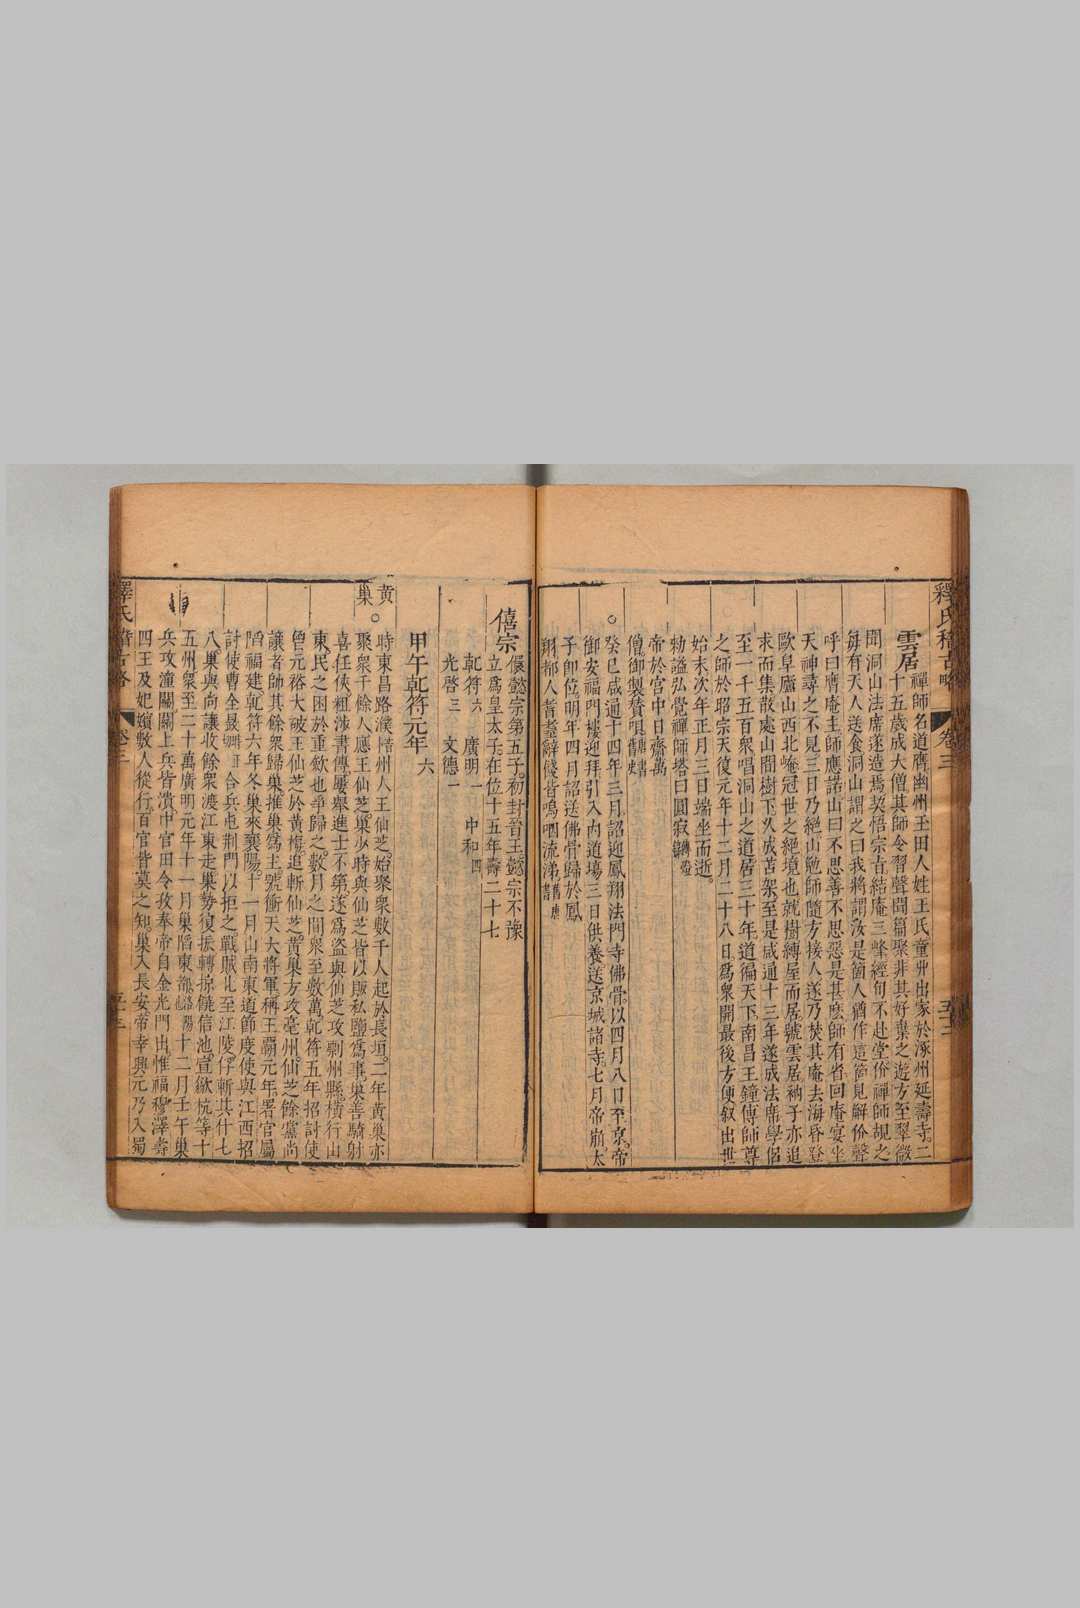 釋氏稽古略 卷三 五十二
雲居禪師名道膺幽州玉田人姓王氏童丱出家於涿州延壽寺二
十五歲成大僧其師令習聲聞篇聚非其好棄之遊方至翠微
聞洞山法席遂造焉契悟宗旨結庵三峰經旬不赴堂价禪師覘之
每有天人送食洞山謂之曰我將謂汝是箇人猶作這箇見解价聲
呼曰膺庵主師應諾山曰不思善不思惡是甚麽師有省回庵宴坐
天神尋之不見三日乃絕山勉師隨方接人遂乃焚其庵去海昏登
歐阜廬山西北崦冠世之絕境也就樹縛屋而居號雲居衲子亦追
求而集散處山間樹下久成苦架至是咸通十三年遂成法席學侶
至一千五百衆唱洞山之道居三十年道徧天下南昌王鍾傳師尊
之師於昭宗天復元年十二月二十八日爲衆開最後方便叙出世
始末次年正月三日端坐而逝
勅謚弘覺禪師塔曰圓寂
帝於宮中日齋萬
僧御製賛唄
○癸巳咸通十四年三月詔迎鳳翔法門寺佛骨以四月八日至京帝
御安福門樓迎拜引入內道場三日供養送京城諸寺七月帝崩太
子即位明年四月詔送佛骨歸於鳳
翔都人耆耋辭餞皆嗚咽流涕舊唐書
僖宗儇懿宗第五子初封晉王懿宗不豫
立爲皇太子在位十五年壽二十七
乾符六 廣明一 中和四
光啓三 文德一
甲午乾符元年 六
黃巢○時東昌路濮州人王仙芝始聚衆數千人起於長垣二年黃巢亦
聚衆千餘人應王仙芝巢少時與仙芝皆以販私鹽爲事巢善騎射
喜任俠粗涉書傳屢舉進士不第遂爲盜與仙芝攻剽州縣橫行山
東民之困於重歛也爭歸之數月之間衆至數萬乾符五年招討使
曾元裕大破王仙芝於黃梅追斬仙芝黃巢方攻亳州仙芝餘黨尚
讓者師其餘衆歸巢推巢爲主號衝天大將軍稱王霸元年署官屬
陷福建乾符六年冬巢來襄陽十一月山南東道節度使與江西招
討使曹全晸 合兵屯荆門以拒之戰賊北至江陵俘斬其什七
八巢與尚讓收餘衆渡江東走巢勢復振轉掠饒信池宣歙杭等十
五州衆至二十萬廣明元年十一月巢陷東都 十二月壬午巢
兵攻潼關關上兵皆潰中官田令孜奉帝自金光門出惟福穆澤壽
四王及妃嬪數人從行百官皆莫之知巢入長安帝幸興元乃入蜀
釋氏稽古略 卷三 五十三